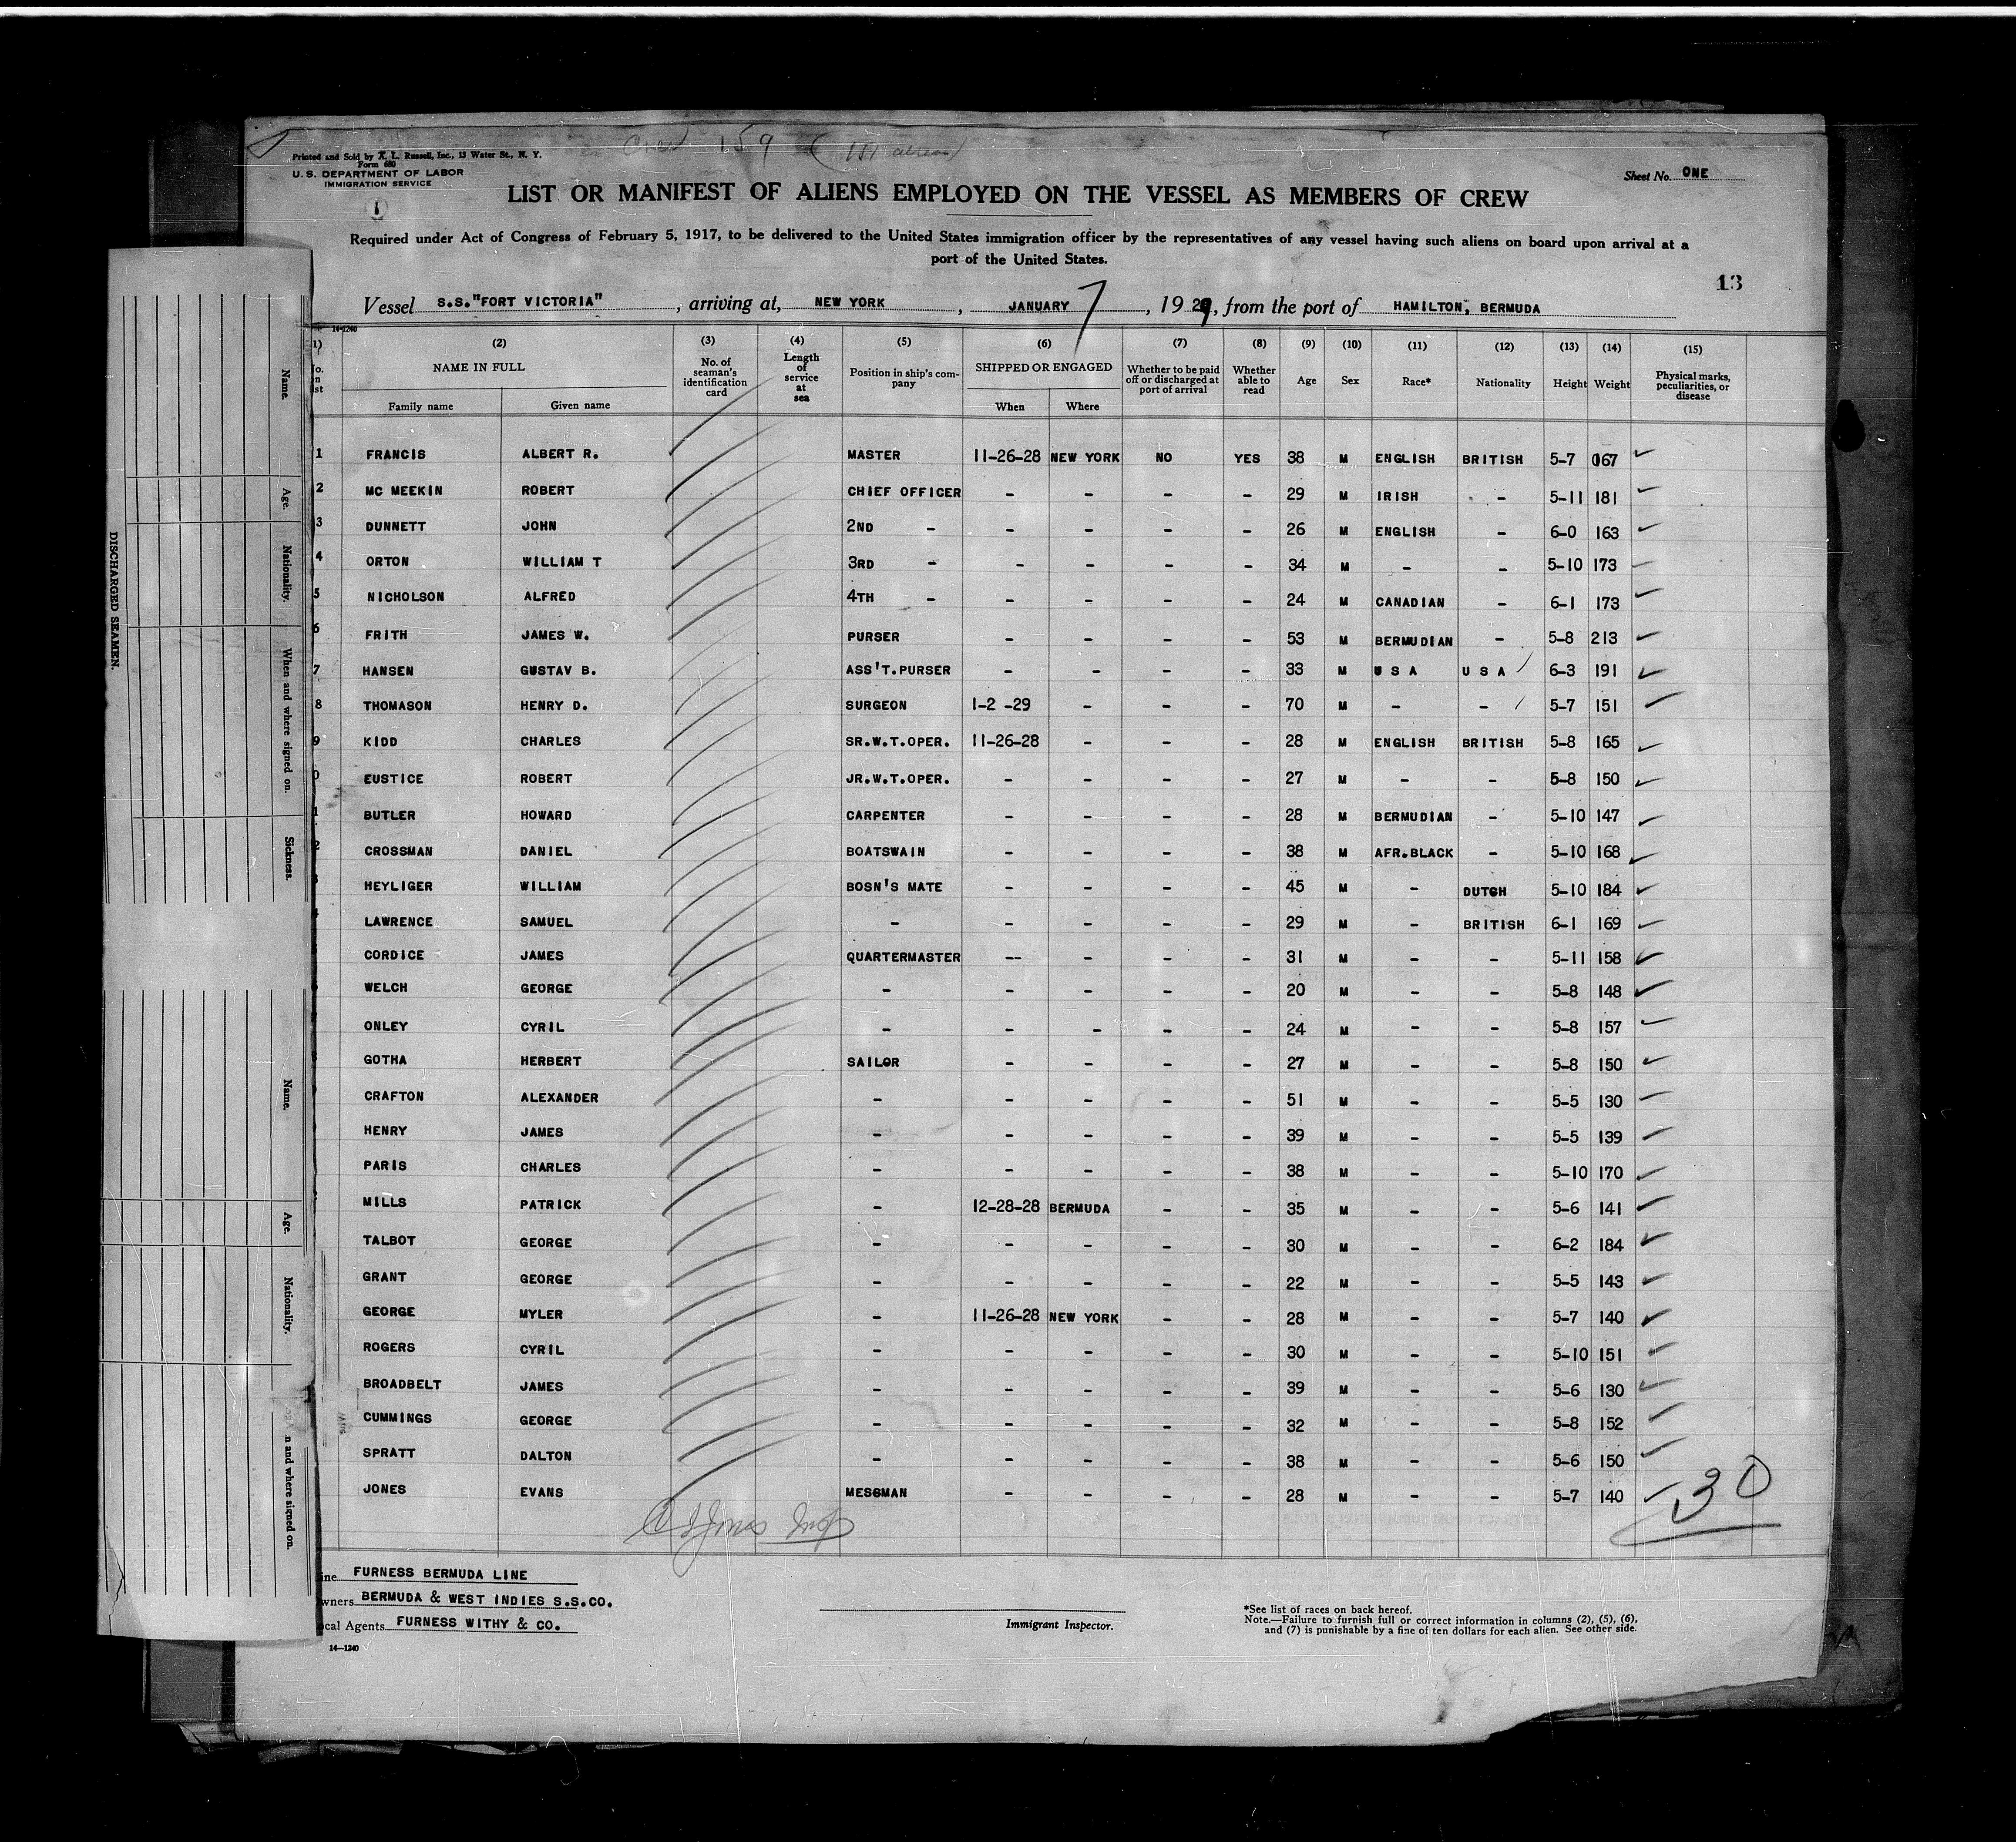 Crew 159 (151 aliens)
Printed and Sold by X. L. Russell, Inc., 13 Water St., N. Y.
Form 680
U. S. DEPARTMENT OF LABOR
IMMIGRATION SERVICE
Sheet No. ONE
LIST OR MANIFEST OF ALIENS EMPLOYED ON THE VESSEL AS MEMBERS OF CREW
Required under Act of Congress of February 5, 1917, to be delivered to the United States immigration officer by the representatives of any vessel having such aliens on board upon arrival at a
port of the United States.
13
Vessel S.S."FORT VICTORIA", arriving at, NEW YORK, JANUARY 7, 1929, from the port of HAMILTON, BERMUDA
14-1240
(2) (3) (4) (5) (6) (7) (8) (9) (10) (11) (12) (13) (14) (15)
NAME IN FULL No. of seaman's identification card Length of service at sea Position in ship's com-pany SHIPPED OR ENGAGED Whether to be paid off or discharged at port of arrival Whether able to read Age Sex Race* Nationality Height Weight Physical marks, peculiarities, or disease
Family name Given name When Where
1 FRANCIS ALBERT R. MASTER 11-26-28 NEW YORK NO YES 38 M ENGLISH BRITISH 5-7 067
2 MC MEEKIN ROBERT CHIEF OFFICER - - - - 29 M IRISH - 5-11 181
3 DUNNETT JOHN 2ND - - - - - 26 M ENGLISH - 6-0 163
4 ORTON WILLIAM T 3RD - - - - - 34 M - - 5-10 173
5 NICHOLSON ALFRED 4TH - - - - - 24 M CANADIAN - 6-1 173
6 FRITH JAMES W. PURSER - - - - 53 M BERMUDIAN - 5-8 213
7 HANSEN GUSTAV B. ASS'T.PURSER - - - - 33 M U S A U S A 6-3 191
8 THOMASON HENRY D. SURGEON 1-2 -29 - - - 70 M - - 5-7 151
9 KIDD CHARLES SR.W.T.OPER. 11-26-28 - - - 28 M ENGLISH BRITISH 5-8 165
0 EUSTICE ROBERT JR.W.T.OPER. - - - - 27 M - - 5-8 150
1 BUTLER HOWARD CARPENTER - - - - 28 M BERMUDIAN - 5-10 147
2 CROSSMAN DANIEL BOATSWAIN - - - - 38 M AFR.BLACK - 5-10 168
HEYLIGER WILLIAM BOSN'S MATE - - - - 45 M - DUTCH 5-10 184
LAWRENCE SAMUEL - - - - - 29 M - BRITISH 6-1 169
CORDICE JAMES QUARTERMASTER -- - - - 31 M - - 5-11 158
WELCH GEORGE - - - - - 20 M - - 5-8 148
ONLEY CYRIL - - - - - 24 M - - 5-8 157
GOTHA HERBERT SAILOR - - - - 27 M - - 5-8 150
CRAFTON ALEXANDER - - - - - 51 M - - 5-5 130
HENRY JAMES - - - - - 39 M - - 5-5 139
PARIS CHARLES - - - - - 38 M - - 5-10 170
MILLS PATRICK - 12-28-28 BERMUDA - - 35 M - - 5-6 141
TALBOT GEORGE - - - - - 30 M - - 6-2 184
GRANT GEORGE - - - - - 22 M - - 5-5 143
GEORGE MYLER - 11-26-28 NEW YORK - - 28 M - - 5-7 140
ROGERS CYRIL - - - - - 30 M - - 5-10 151
BROADBELT JAMES - - - - - 39 M - - 5-6 130
CUMMINGS GEORGE - - - - - 32 M - - 5-8 152
SPRATT DALTON - - - - - 38 M - - 5-6 150
JONES EVANS MESSMAN - - - - 28 M - - 5-7 140
30
Jones Insp
FURNESS BERMUDA LINE
BERMUDA & WEST INDIES S.S.CO.
Agents FURNESS WITHY & CO.
14-1240
Immigrant Inspector.
*See list of races on back hereof.
Note.—Failure to furnish full or correct information in columns (2), (5), (6),
and (7) is punishable by a fine of ten dollars for each alien. See other side.
DISCHARGED SEAMEN.
Name. Age. Nationality. When and where signed on. Sickness.
Name. Age. Nationality. n and where signed on.